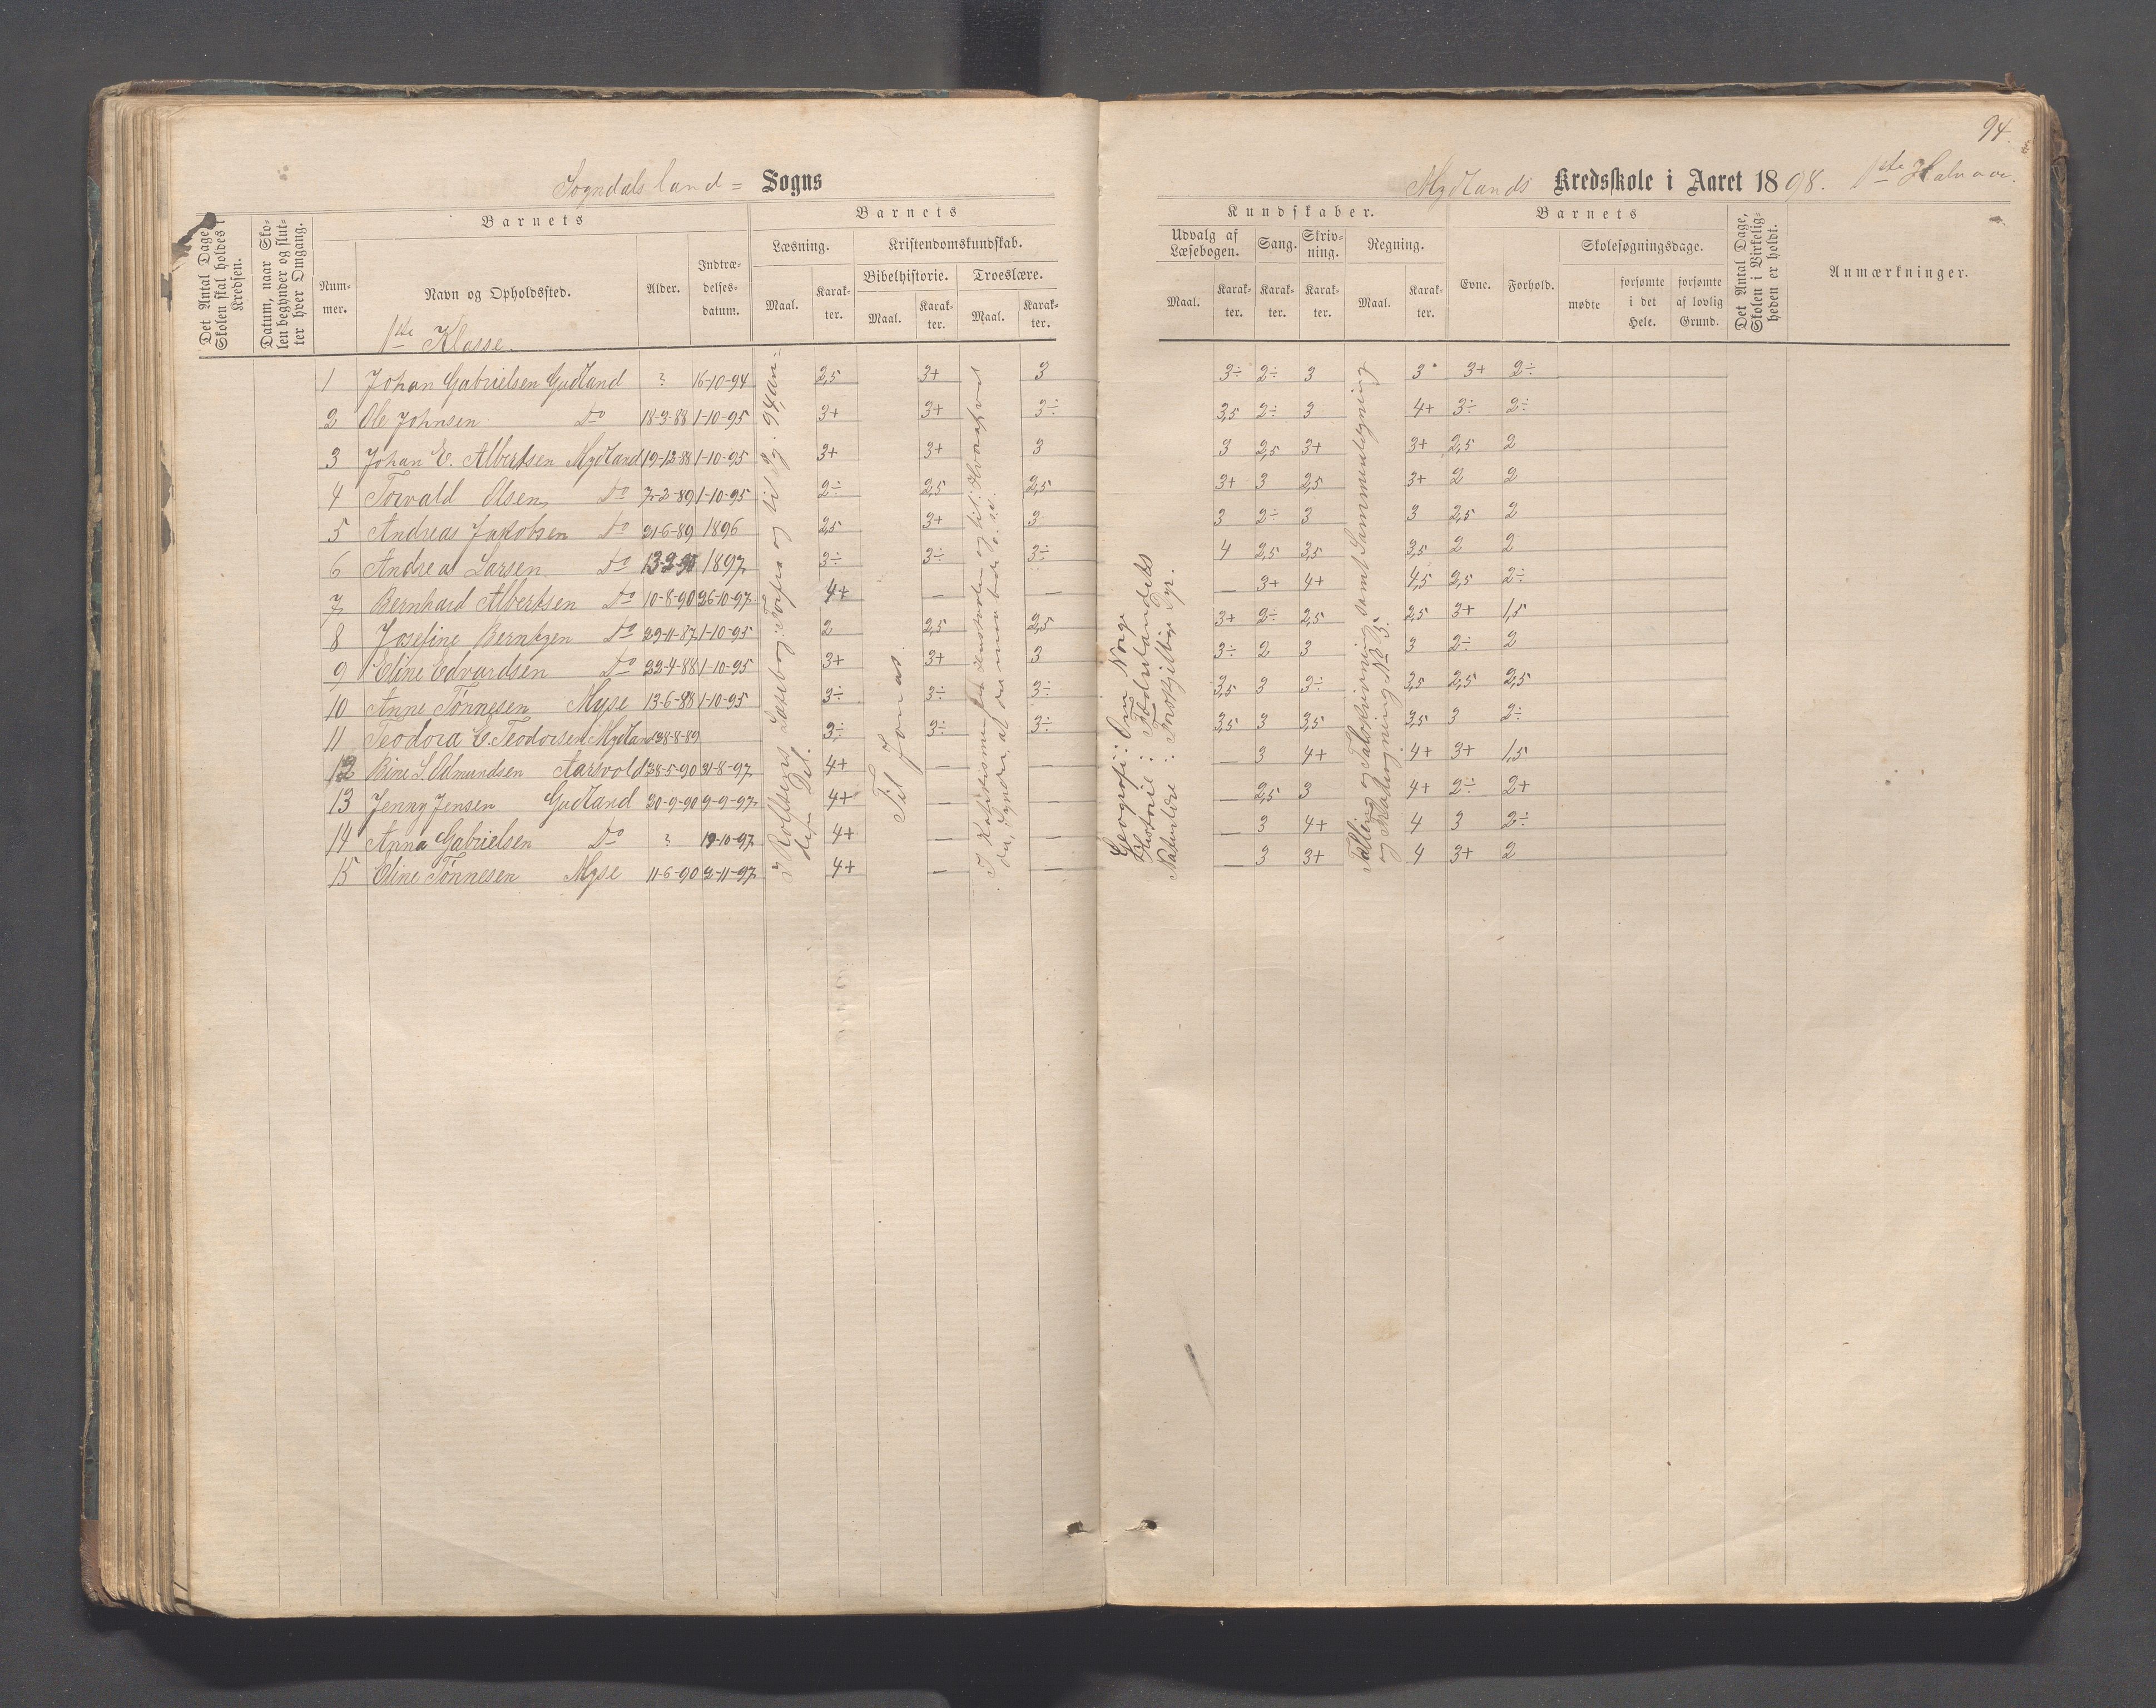 94.
Sogndalsland = Sogns
Mydlands Kredsskole i Aaret 1898. 1ste Halvaar.
Det Antal Dage Skolen skal holdes i Kredsen.
Datum, naar Skolen begynder og slutter hver Omgang.
Barnets
Nummer.
Navn og Opholdssted.
Alder.
Indtrædelsesdatum.
Barnets
Læsning.
Maal.
Karakter.
Kristendomskundskab.
Bibelhistorie.
Maal.
Karakter.
Troeslære.
Maal.
Karakter.
Kundskaber.
Udvalg af Læsebogen.
Maal.
Karakter.
Sang.
Karakter.
Skrivning.
Karakter.
Regning.
Maal.
Karakter.
Barnets
Evne.
Forhold.
Skolesøgningsdage.
mødte
forsømte i det Hele.
forsømte af lovlig Grund.
Det Antal Dage, Skolen i Virkeligheden er holdt.
Anmærkninger.
1ste Klasse.
1 Johan Gabrielsen Gudland ? 16-10-94 2,5 3+ 3 3÷ 2÷ 3 3 3+ 2÷
2 Ole Johnsen Do 18-3-88 1-10-95 3+ 3+ 3÷ 3,5 2÷ 3 4+ 3÷ 2÷
3 Johan E. Albertsen Mydland 19-12-88 1-10-95 3+ 3+ 3 3 2,5 3+ 3+ 2,5 2
4 Torvald Olsen Do 7-2-89 1-10-95 2÷ 2,5 2,5 3+ 3 2,5 3+ 2 2
5 Andreas Jakobsen Do 21-6-89 1896 2,5 3+ 3 3 2÷ 3 3 2,5 2
6 Andrea Larsen Do 13-2-90 1897 3÷ 3÷ 3÷ 4 2,5 3,5 3,5 2 2
7 Bernhard Albertsen Do 10-8-90 26-10-97 4+ — — — 3+ 4+ 4,5 2,5 2÷
8 Josefine Berntzen Do 29-11-87 1-10-95 2 2,5 2,5 3+ 2÷ 2,5 2,5 3+ 1,5
9 Eline Edvardsen Do 22-4-88 1-10-95 3+ 3+ 3 3÷ 2 3 3 2÷ 2
10 Anne Tønnesen Myse 13-6-88 1-10-95 3÷ 3÷ 3÷ 3,5 3 3÷ 3,5 2,5 2,5
11 Teodora E. Teodorsen Mydland 28-8-89 3÷ 3÷ 3÷ 3,5 3 3,5 3,5 3 2÷
12 Bine S. Admundsen Aarsvold 28-5-90 31-8-97 4+ — — — 3 4+ 4+ 3+ 1,5
13 Jenny Jensen Gudland 20-9-90 9-9-97 4+ — — — 2,5 3 4+ 2÷ 2+
14 Anna Gabrielsen Do ? 19-10-97 4+ — — — 3 4+ 4 3 2÷
15 Eline Tønnesen Myse 11-6-90 2-11-97 4+ — — — 3 3+ 4 3+ 2
I Rolfsens Læsebog: Forfra og til Pg. 94, an-
den Del.
Til Jonas.
Geografi: Om Norge
Historie: Fædrelandets
Naturlære: Forskjellige Dyr.
samt Sammenlægning
og Hoderegning No 5.